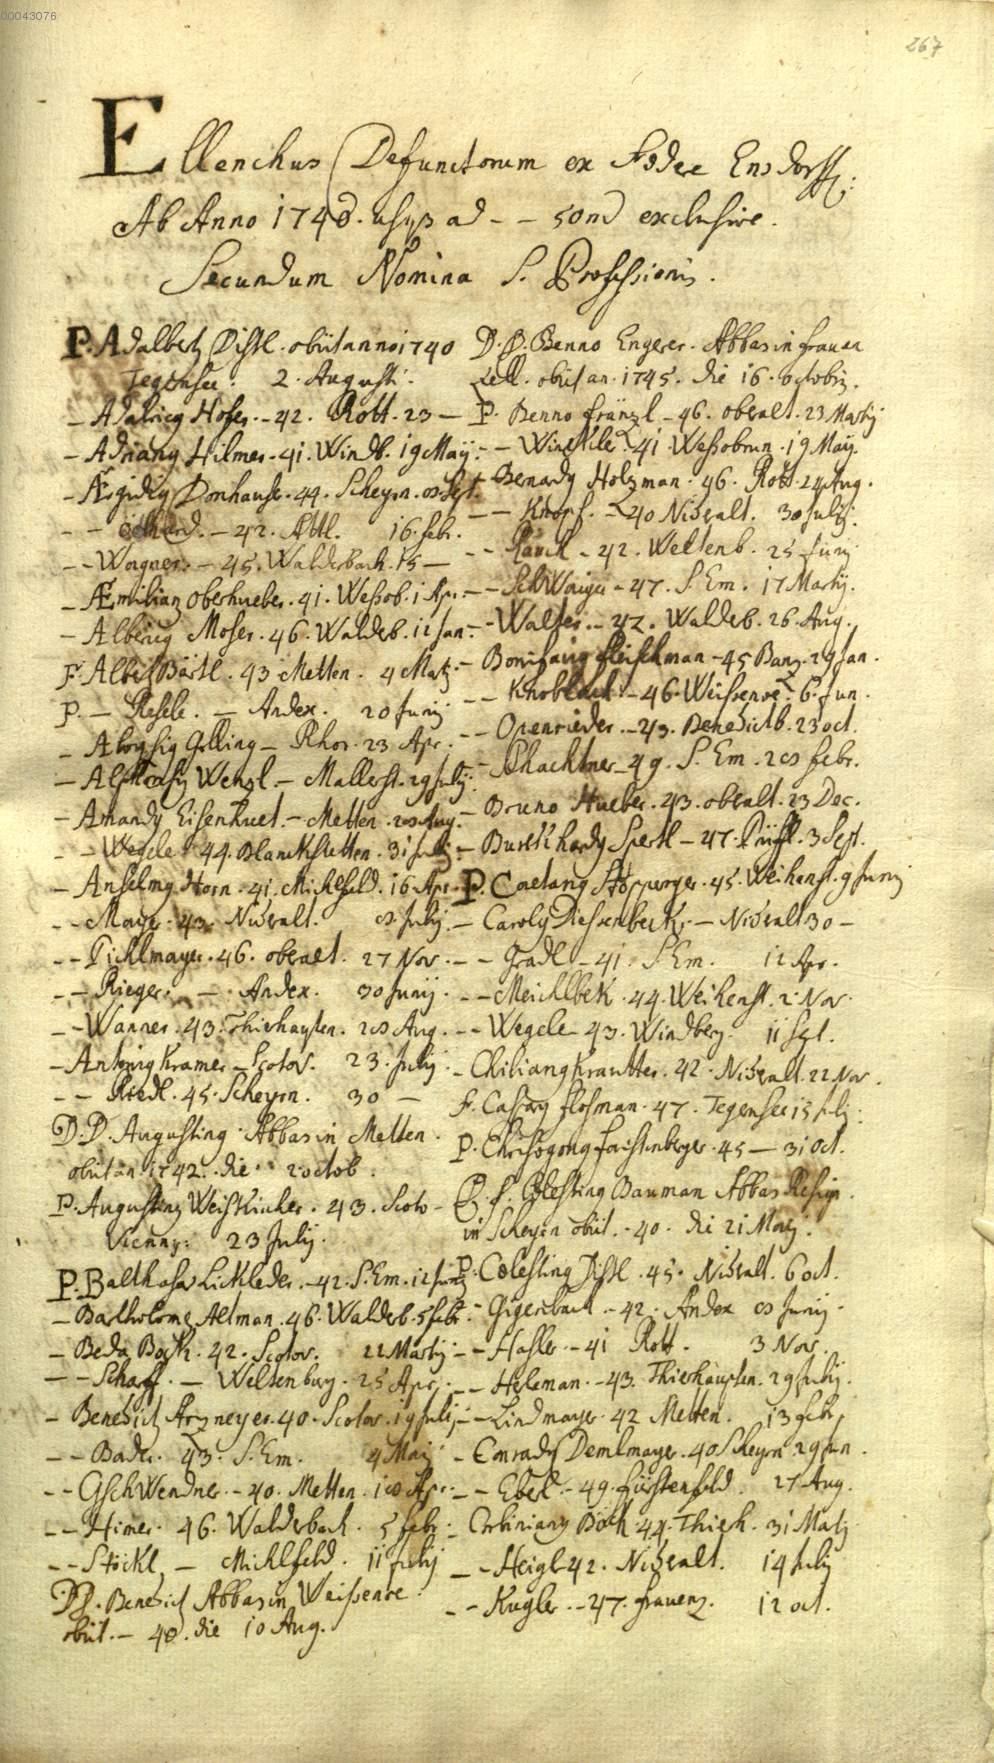 00043076
267
Ellenchus Defunctorum ex Fœdere Ensdorff:
Ab Anno 1740. usqs ad - - 50md exclusive.
Secundum Nomina S. Professionis.
P. Adalberts Distl. obiit anno 1740
Tegensee: 2. Augusti.
- Adalricq Hofer. - 42. Rott. 23 -
- Adrianq Hilmer. 41. Windb. 19 May.
- Ægidiq Donhauser. 44. Scheyrn.
- - 42. Attl. 16. febr.
- - Wagner. - 45. Walderbach. 15 -
- Æmilianq Oberhueber. 41. Wessob. 1 Apr.
- Albericq Moser. 46. Walderb. 12 Jan.
Fr. Bärtl. 43 Metten. 4 Martz
P. - Resele. - Andex. 20 Junij
- Aloysiq Gelling - Rhor. 23 Apr.
- Wenzl. - Mallerst. 29 Julij.
- Amandq Eisenhuet. - Metten. Aug.
- - Wegele 44. Blanckstetten. 31 Julij
- Anselmq Horn. 41. Michlfeld. 16 Apr.
- - Mayr. 43. Nideralt. Julij.
- - Pichlmayer. 46. oberalt. 27 Nov.
- - Rieger. - Andex. 30 Junij.
- - Wanner. 43. Thierhaupten. Aug.
- Antoniq Kramer - Scotor. 23. Julij.
- - Riedl. 45. Scheyrn. 30 -
D. D. Augustinq Abbas in Metten.
obiit an. 1742. die 2 octob.
P. Augustinq Weiskircher. 43. Scoto-
Viennæ: 23 Julij.
P. Balthasar Lickleder. - 42. S. Em. 12 Junij
- Bartholomæ Altman. 46. Walderb. 5 febr.
- Beda Bosch. 42. Scotor. 22 Martij
- - Scharff. - Weltenburg. 25 Apr.
- Benedict Arzneyer. 40. Scotor. 19 Julij.
- - Bader. 43. S. Em. 4 Maij
- - GschWendner. - 40. Metten. Apr.
- - Himer. 46. Walderbach. 5 febr.
- - Stöckl. - Michlfeld. 11 Julij
DD. Benedict Abbas in Weissenoe
obiit. - 40. die 10 Aug.
D. D. Benno Engerer. Abbas in Frauen
Zell. obiit an. 1745. die 16. octobris.
P. Benno Fränzl - 46. oberalt. 23 Martij
- - Winckler 41 Wessobrun. 19 May.
- Bernardq Holzman. 46. Rott. 24 Aug.
- - Knopf. - 40 Nideralt. 30 Julij.
- - Rauch - 42. Weltenb. 25 Junij
- - SchWaiger - 47. S. Em. 17 Martij.
- - Walser. - 42. Walderb. 26. Aug.
- Bonifaciq Fleischman - 45 Banz. 29 Jan.
- - Knoblach - 46. Weissenoe. 6. Jun.
- - Openrieder. - 43. Benedictb. 23 oct.
- Schachtner - 49. S. Em. febr.
- Bruno Hueber. 43. oberalt. 23 Dec.
- Burckhardq Spertl - 47. Prüfl. 3 Sept.
P. Caetanq Stopperger. 45. Weihenst. 9 Junij
- Carolq Diessenbeckh. - Nideralt 30 -
- - Gradl - 41. S. Em. 12 Apr.
- - Meichlbek. 44. Weihenst. 2. Nov.
- - Wegele - 43. Windberg. 11 Spt.
- Chilianq Krautter. 42. Nideralt. 22 Nov.
f. Casparq Flosman. 47. Tegensee 15 Julij:
P. Chrisogonq Forstenberger. 45 - 31 oct.
D. D. Cœlestinq Bauman Abbas Resign.
in Scheyrn obiit. - 40. die 21 Martij.
P. Cœlestinq Distl. 45. Nideralt. 6 oct.
- Gigenbach - 42. Andex Junij
- - Hasler - 41 Rott. 3 Nov.
- - Heleman. - 43. Thierhaupten. 29 Julij.
- - Lindmayer. 42 Metten. 13 febr.
- Conradq Demlmayer. 40 Scheyrn 29 Jun.
- - Eberl. - 49. Fürstenfeld. 27 Aug.
- Corbinianq Böck 44. Thierh. 31 Martij.
- - Heigl - 42. Nideralt. 14 Julij
- - Kugler. - 47. frauenz. 12 oct.